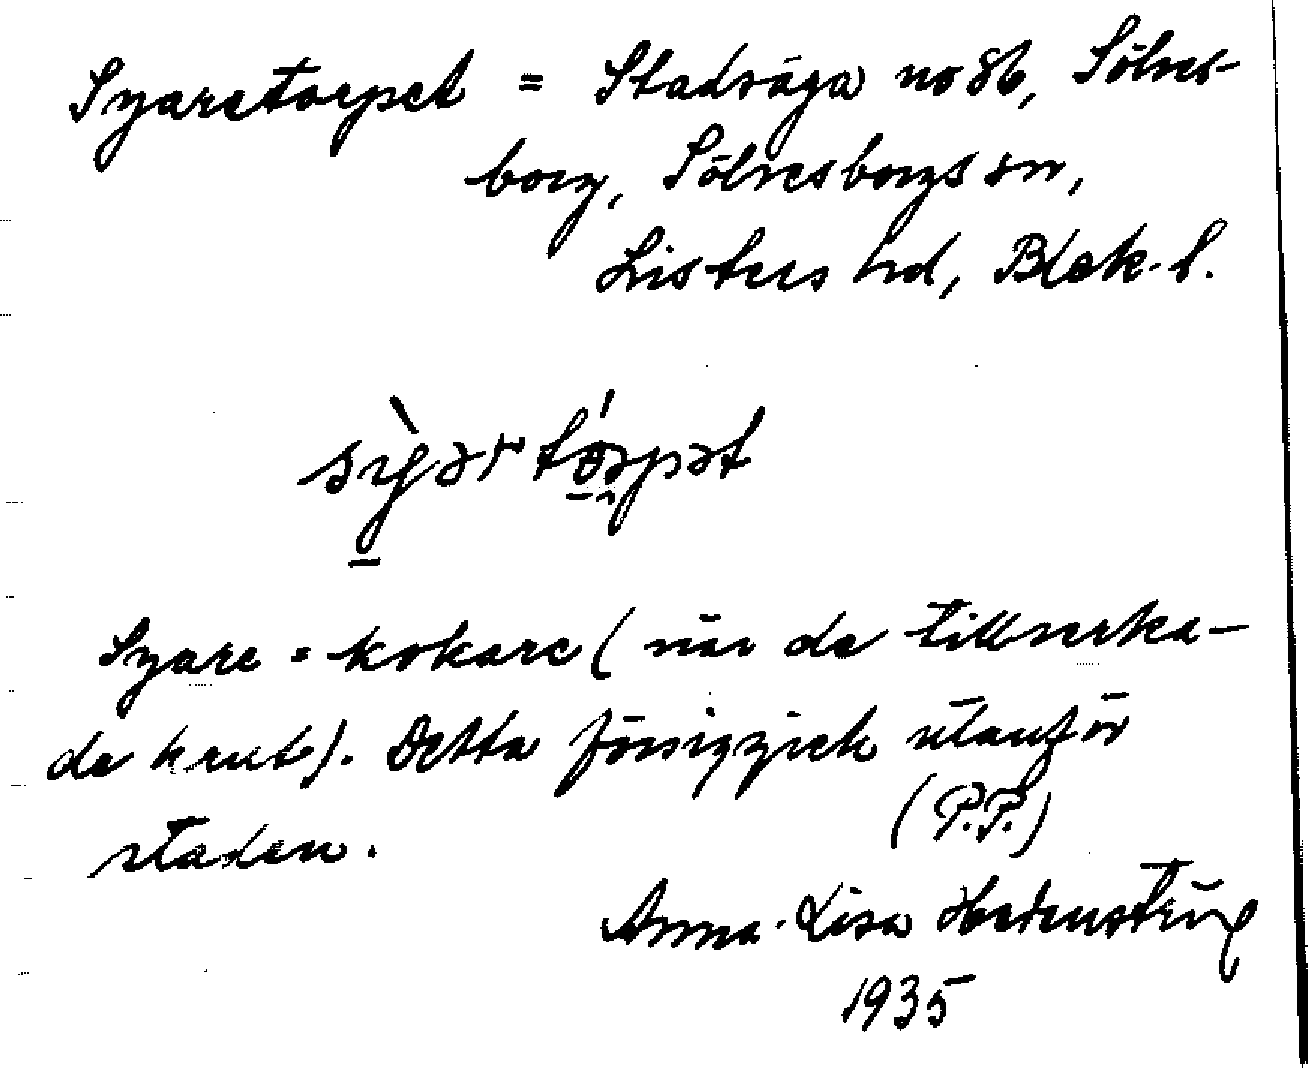 Syaretorpet = Stadsäga no 86, Sölves-
borg, Sölvesborgs sn,
Listers hd, Blek. l.
Syare = kokare (när de tillverka-
de krut). Detta försiggick utanför
staden.
(P.P.)
Anna-Lisa
1935